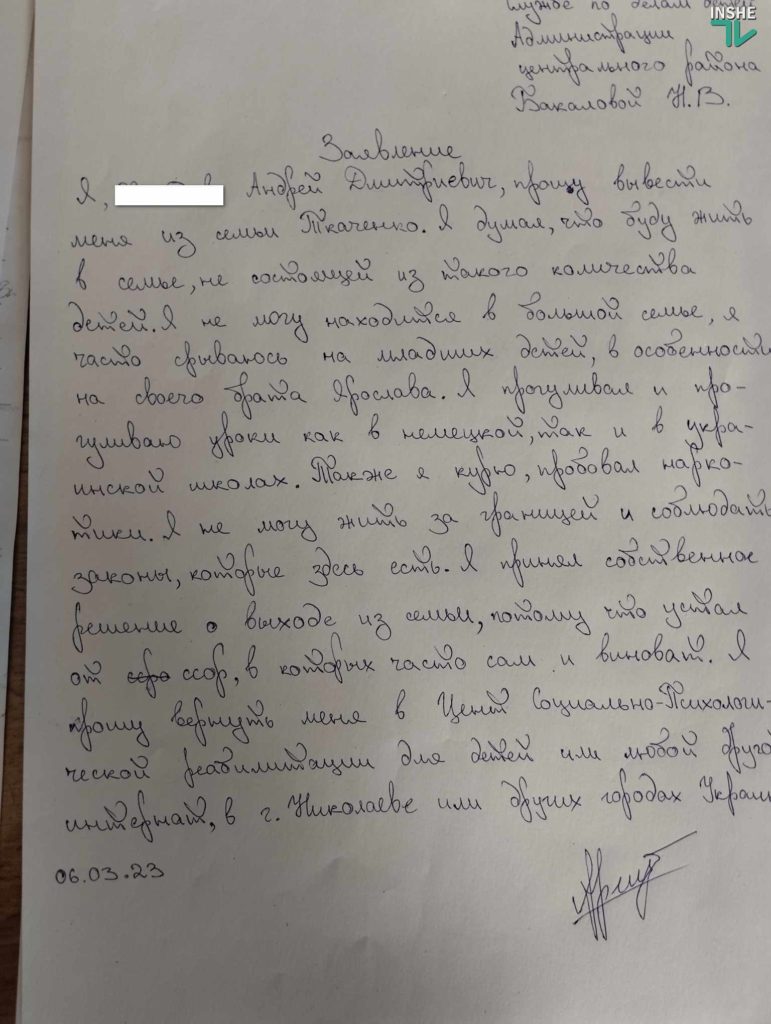 INSHE
Службе по делам детей
Администрации
центрального района
Бакаловой Н.В.
Заявление
Я, Андрей Дмитриевич, прошу вывести
меня из семьи Ткаченко. Я думал, что буду жить
в семье, не состоящей из такого количества
детей. Я не могу находится в большой семье, я
часто срываюсь на младших детей, в особенности
на своего брата Ярослава. Я прогуливал и про-
гуливаю уроки как в немецкой, так и в укра-
инской школах. Также я курю, пробовал нарко-
тики. Я не могу жить за границей и соблюдать
законы, которые здесь есть. Я принял собственное
решение о выходе из семьи, потому что устал
от ссор, в которых часто сам и виноват. Я
прошу вернуть меня в Центр Социально-Психологи-
ческой реабилитации для детей или любой друго
интернат, в г. Николаеве или других городах Украин
06.03.23